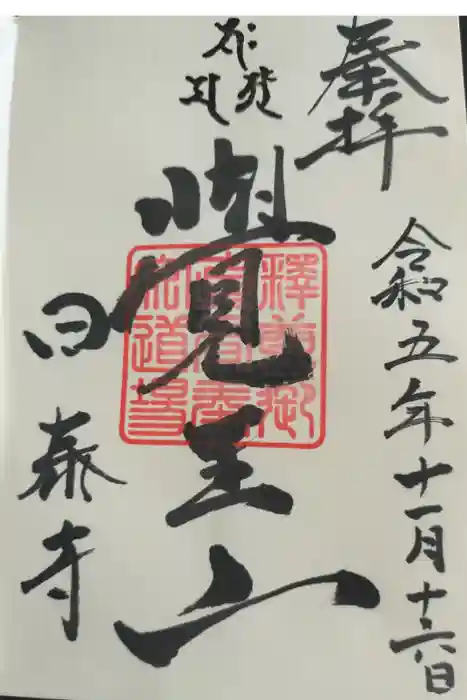 奉拝
令和五年十一月十六日
覺王山
釋尊御
眞骨奉
安道場
日泰寺